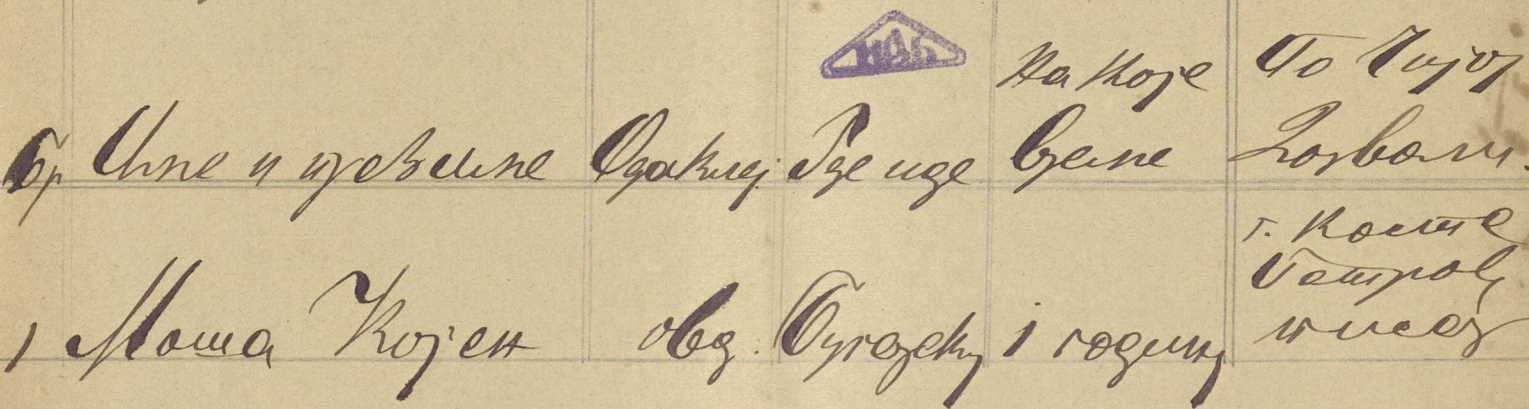 ИАБ
Бр Име и презиме Одаклеј Где иде На које време По Чијој Дозволи
1 Моша Којен овд. Бугарску 1 годину г. Косте
Петров